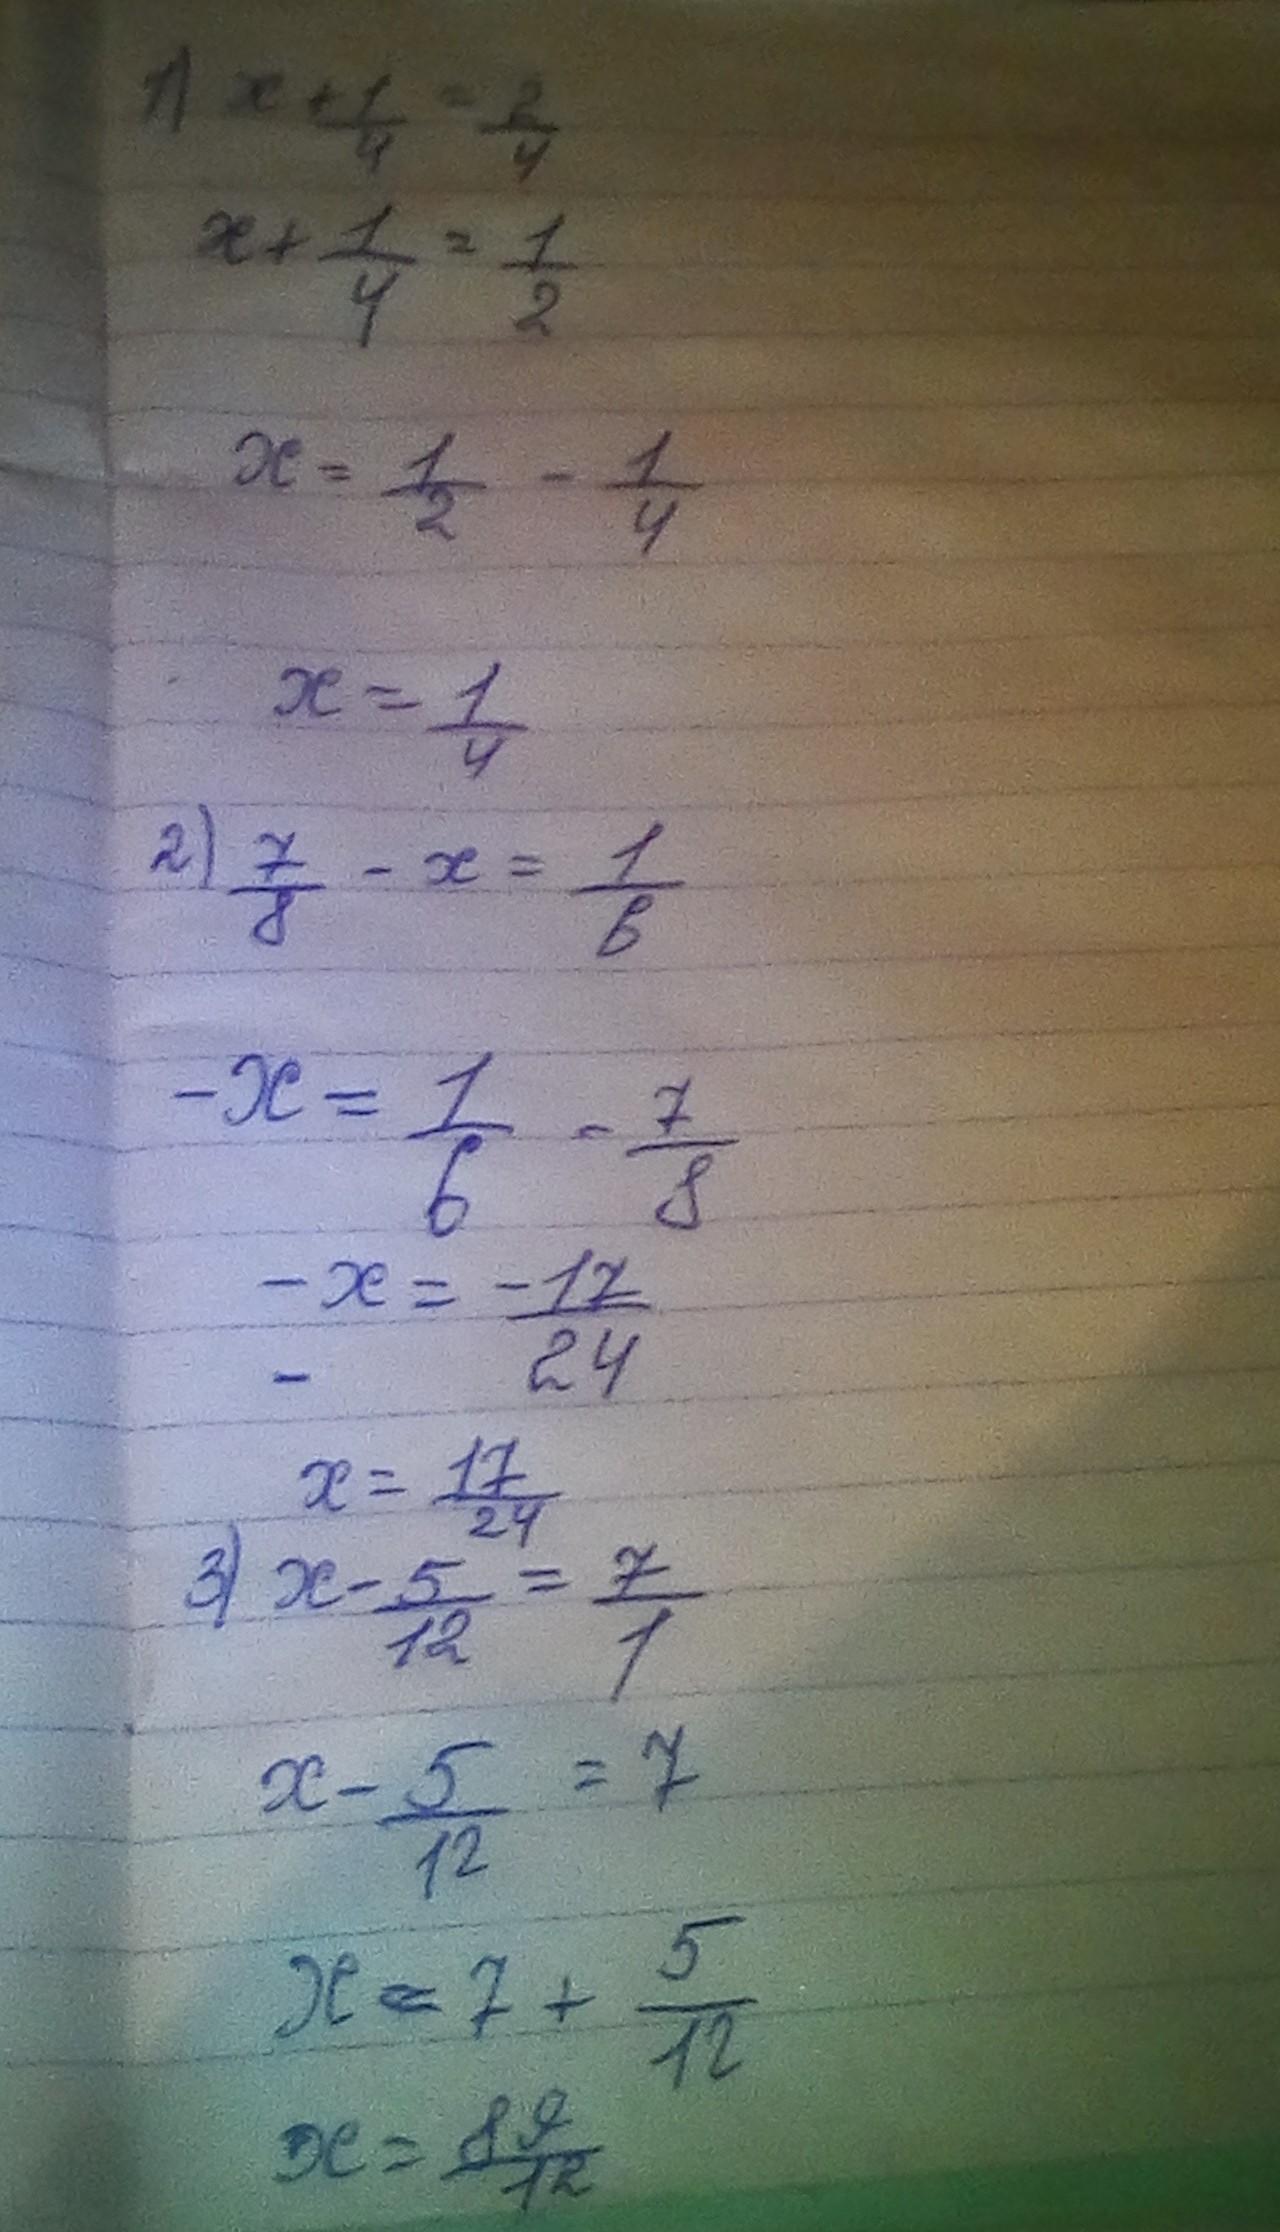 1) x + 1/4 = 2/4
x + 1/4 = 1/2
x = 1/2 - 1/4
x = 1/4
2) 7/8 - x = 1/6
-x = 1/6 - 7/8
-x = -17/24
-
x = 17/24
3) x - 5/12 = 7/1
x - 5/12 = 7
x = 7 + 5/12
x = 89/12